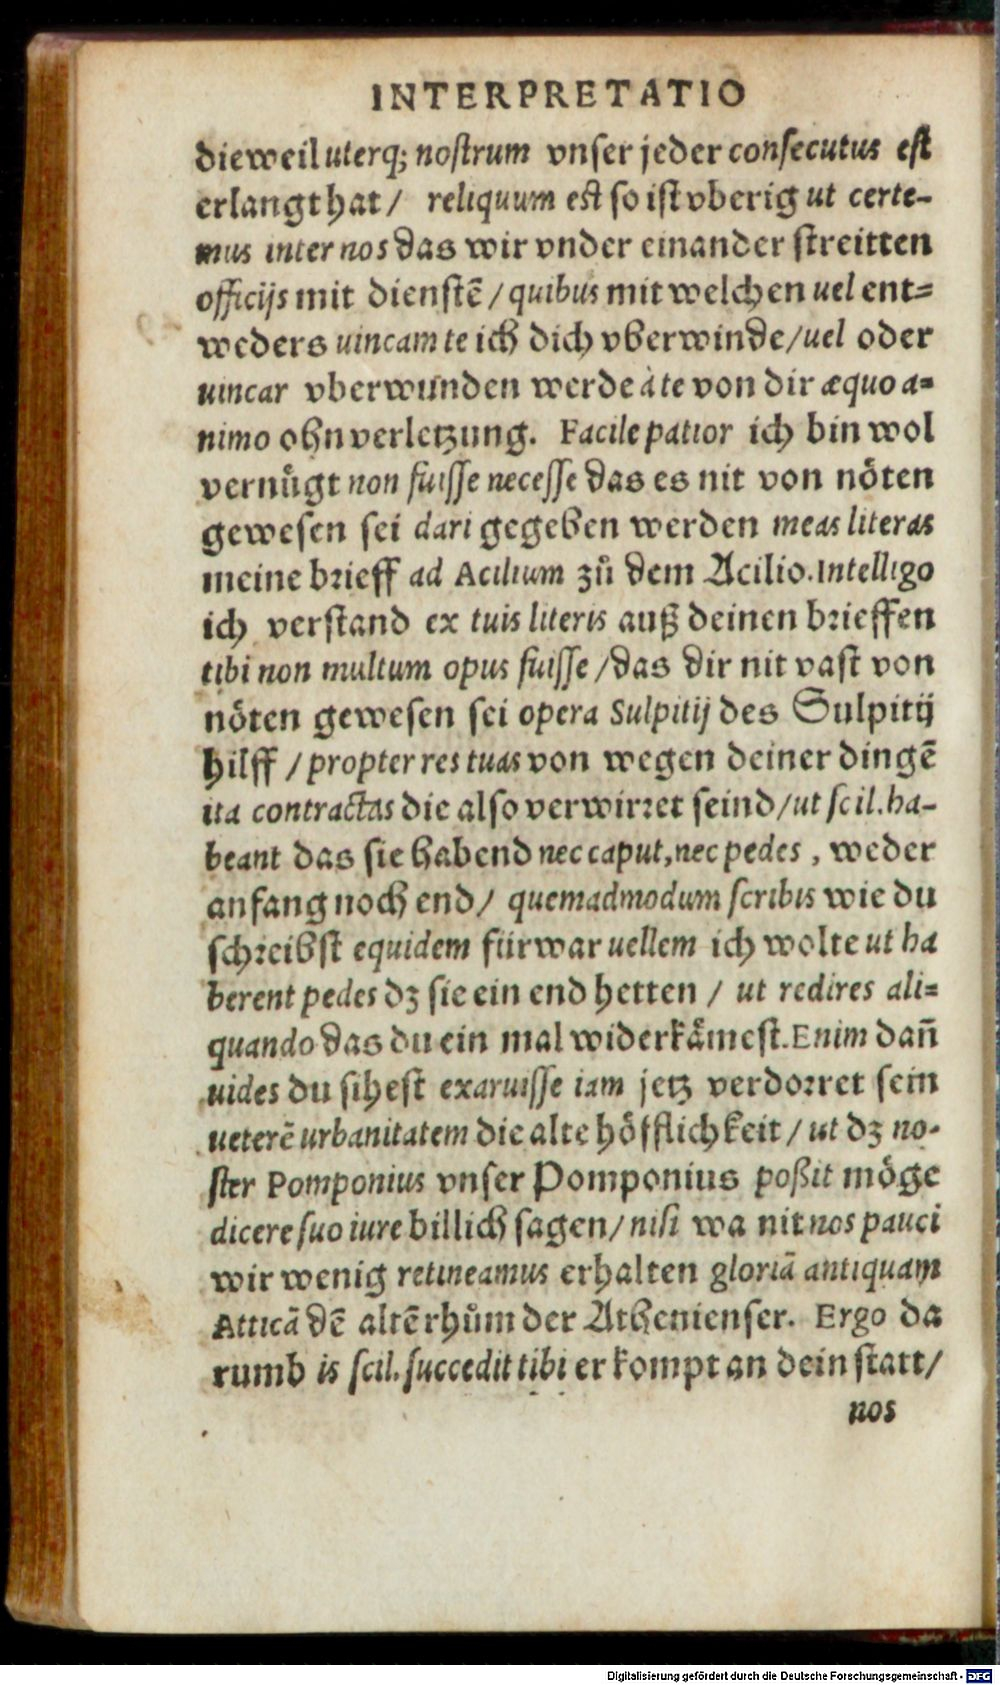 INTERPRETATIO
dieweil uterq; nostrum vnser jeder consecutus est
erlangt hat/ reliquum est so ist vberig ut certe-
mus inter nos das wir vnder einander streitten
officijs mit dienstē/quibus mit welchen uel ent=
weders uincam te ich dich vberwinde/uel oder
uincar vberwunden werde à te von dir æquo a=
nimo ohn verletzung. Facile patior ich bin wol
vernůgt non fuisse necesse das es nit von nöten
gewesen sei dari gegeben werden meas literas
meine brieff ad Acilium zů dem Acilio. Intelligo
ich verstand ex tuis literis auß deinen brieffen
tibi non multum opus fuisse/das dir nit vast von
nöten gewesen sei opera Sulpitij des Sulpitij
hilff/propter res tuas von wegen deiner dingē
ita contractas die also verwirret seind/ut scil. ha-
beant das sie habend nec caput, nec pedes, weder
anfang noch end/ quemadmodum scribis wie du
schreibst equidem fürwar uellem ich wolte ut ha
berent pedes dz sie ein end hetten/ ut redires ali=
quando das du ein mal widerkämest. Enim dañ
uides du sihest exaruisse iam jetz verdorret sein
ueterē urbanitatem die alte höfflichkeit/ut dz no-
ster Pomponius vnser Pomponius poßit möge
dicere suo iure billich sagen/nisi wa nit nos pauci
wir wenig retineamus erhalten gloriā antiquam
Atticā dē altē rhům der Athenienser. Ergo da
rumb is scil. succedit tibi er kompt an dein statt/
nos
Digitalisierung gefördert durch die Deutsche Forschungsgemeinschaft - DFG